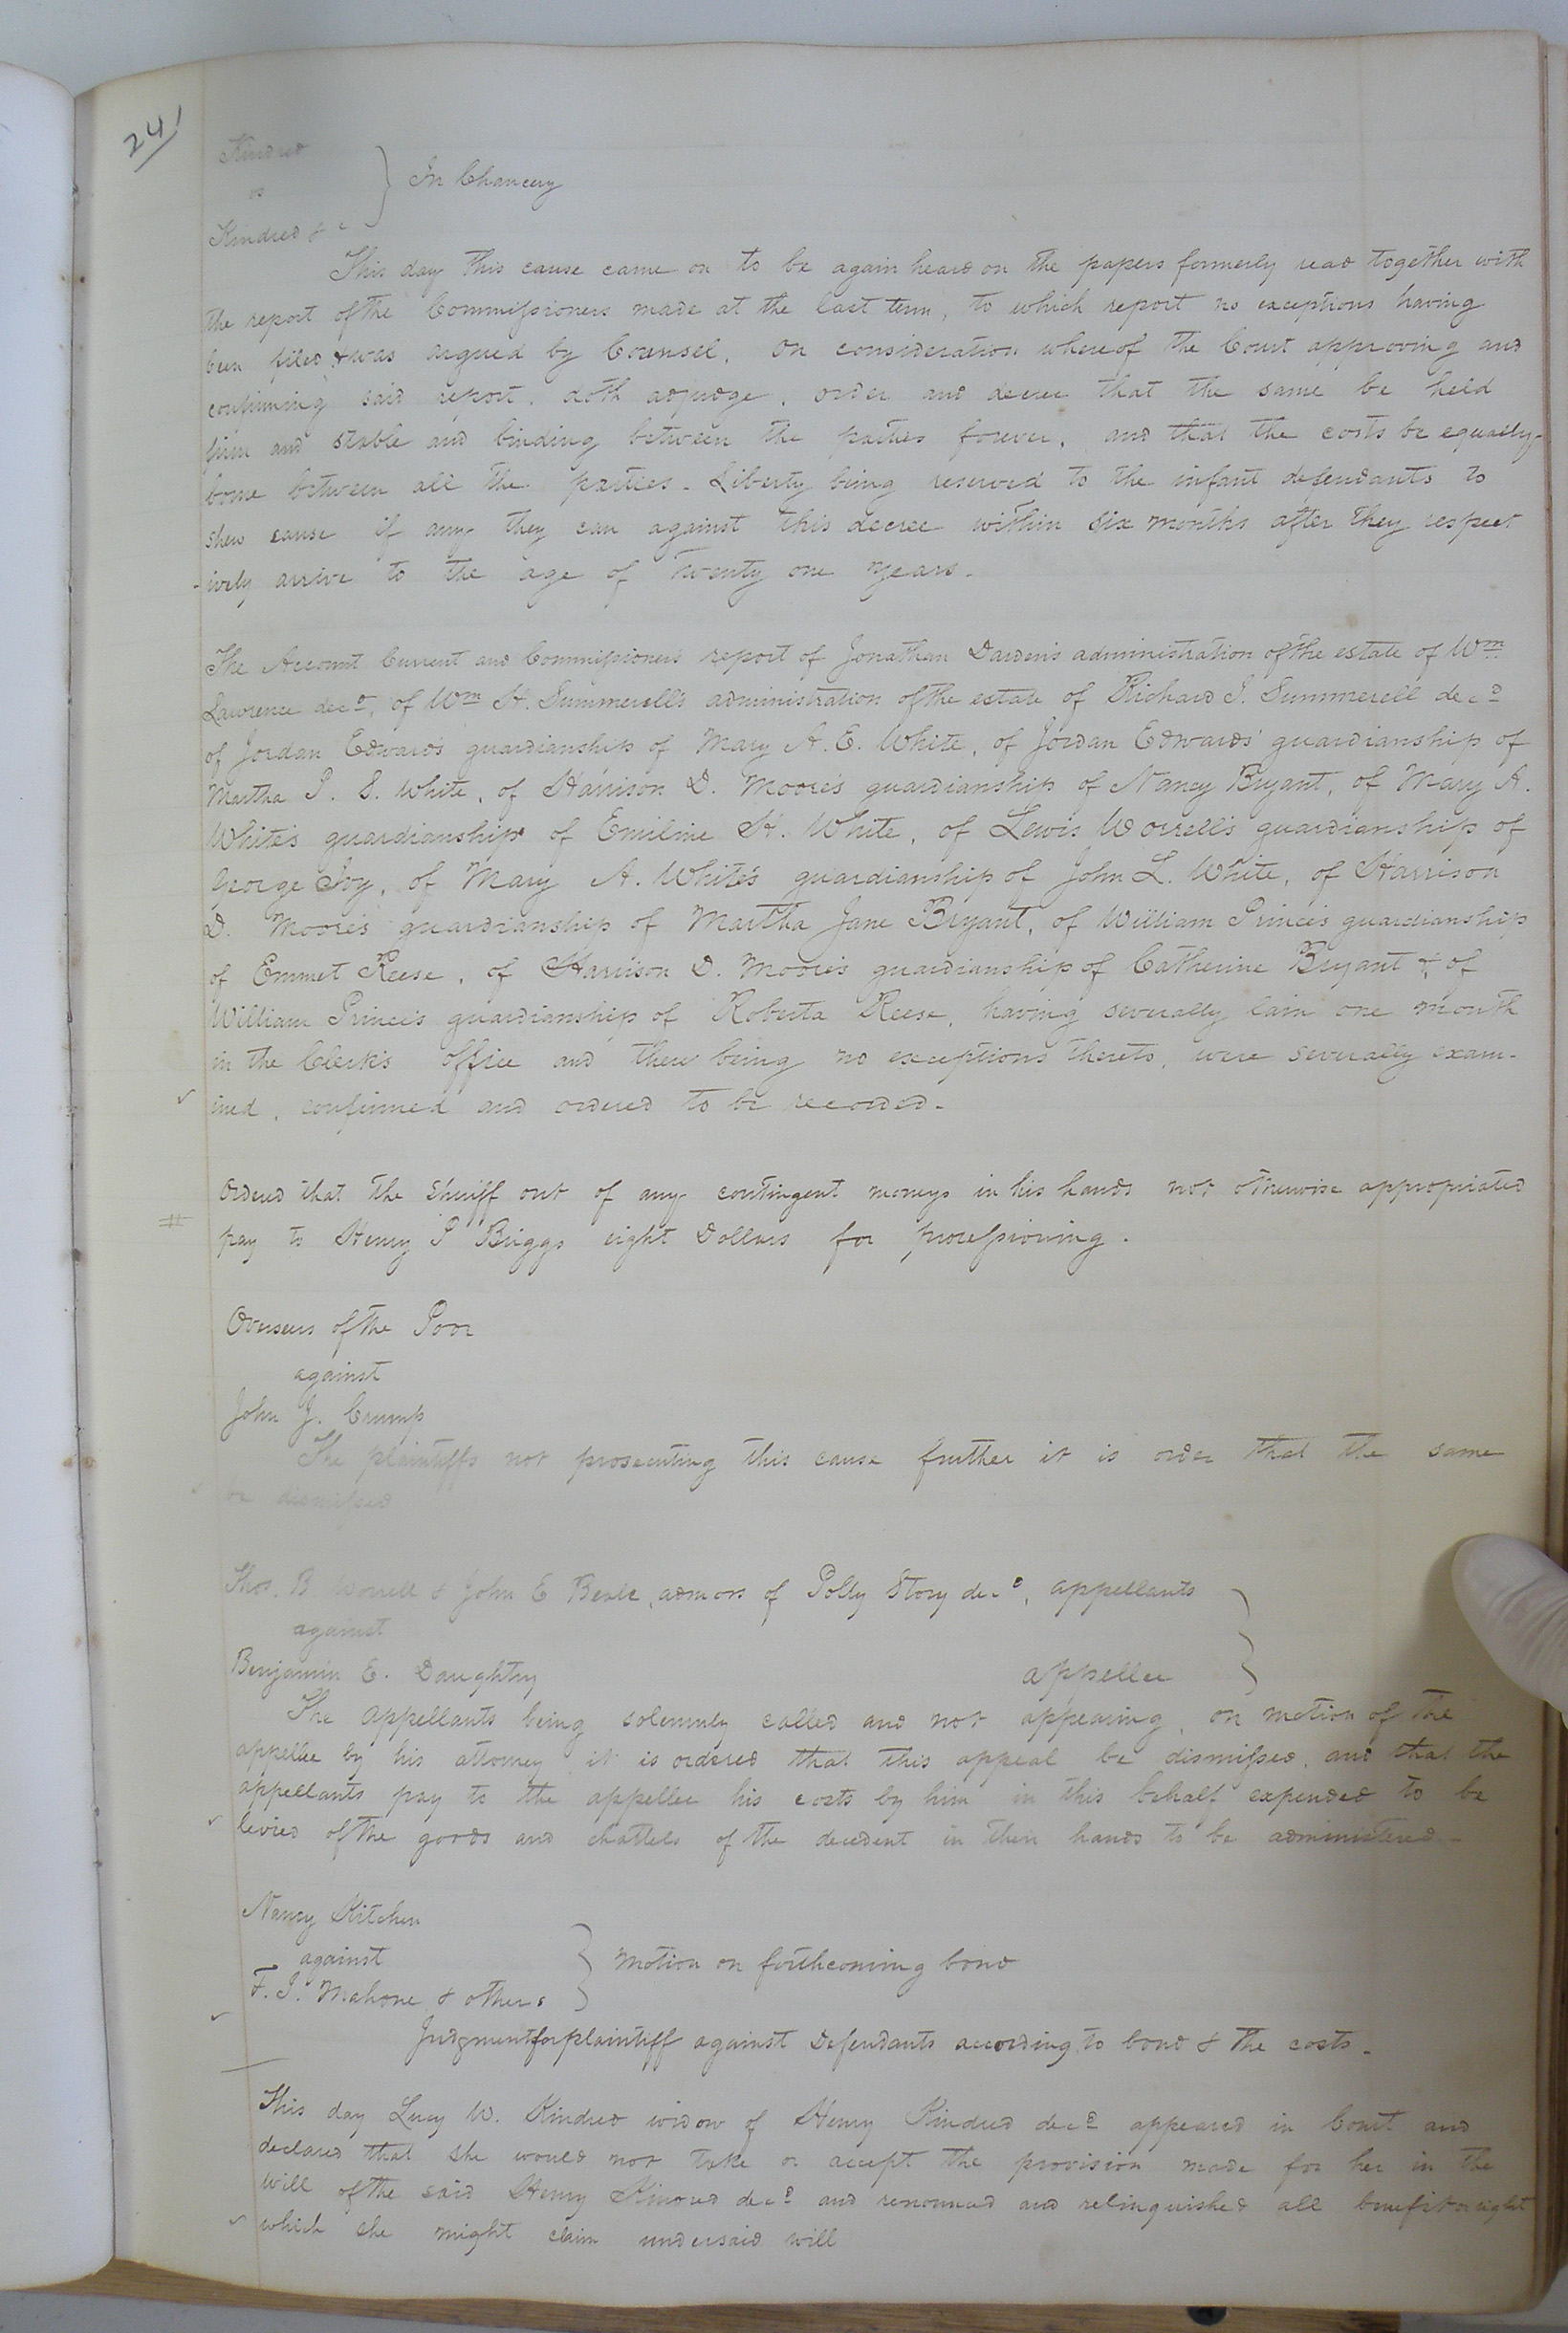 241
Kindred
vs
Kindred &c
In Chancery
This day this cause came on to be again heard on the papers formerly read together with
the report of the Commissioners made at the last term, to which report no exceptions having
been filed & was argued by Counsel. On consideration whereof the Court approving and
confirming said report, doth adjudge, order and decree that the same be held
firm and stable and binding between the parties forever, and that the costs be equally
borne between all the parties. Liberty being reserved to the infant defendants to
shew cause if any they can against this decree within six months after they respect
-ively arrive to the age of twenty one years.
The Account Current and Commissioners report of Jonathan Darden's administration of the estate of Wm
Lawrence decd, of Wm H. Summerell's administration of the estate of Richard J. Summerell decd
of Jordan Edwards guardianship of Mary A. E. White, of Jordan Edwards' guardianship of
Martha P. S. White, of Harrison D. Moore's guardianship of Nancy Bryant, of Mary A.
White's guardianship of Emiline H. White, of Lewis Worrell's guardianship of
George Ivy, of Mary A. White's guardianship of John L. White, of Harrison
D. Moore's guardianship of Martha Jane Bryant, of William Prince's guardianship
of Emmet Reese, of Harrison D. Moore's guardianship of Catherine Bryant & of
William Prince's guardianship of Roberta Reese, having severally lain one month
in the Clerk's office and there being no exceptions thereto, were severally exam-
ined, confirmed and ordered to be recorded.
Ordered that the Sheriff out of any contingent moneys in his hands not otherwise appropriated
pay to Henry P Briggs eight Dollars for processioning.
Overseers of the Poor
against
John J. Crump
The plaintiffs not prosecuting this cause further it is order that the same
be dismissed
Thos. B Worrell & John E Beale, admors of Polly Story decd, appellants
against
Benjamin E. Daughtry appellee
The appellants being solemnly called and not appearing, on motion of the
appellee by his attorney it is ordered that this appeal be dismissed, and that the
appellants pay to the appellee his costs by him in this behalf expended to be
levied of the goods and chattels of the decedent in their hands to be administered
Nancy Kitchen
against
F. J. Mahone & others
Motion on forthcoming bond
Judgment for plaintiff against Defendants according to bond & the costs.
This day Lucy W. Kindred widow of Henry Kindred decd appeared in Court and
declared that she would not take or accept the provision made for her in the
will of the said Henry Kindred decd and renounced and relinquished all benefit or right
which she might claim under said will